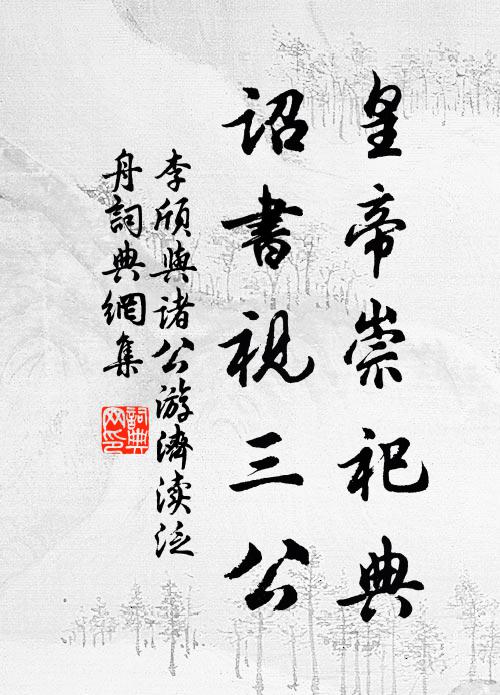 皇帝崇祀典
詔書視三公
李頎與諸公游濟渎泛
舟詞典網集
詞典
网印